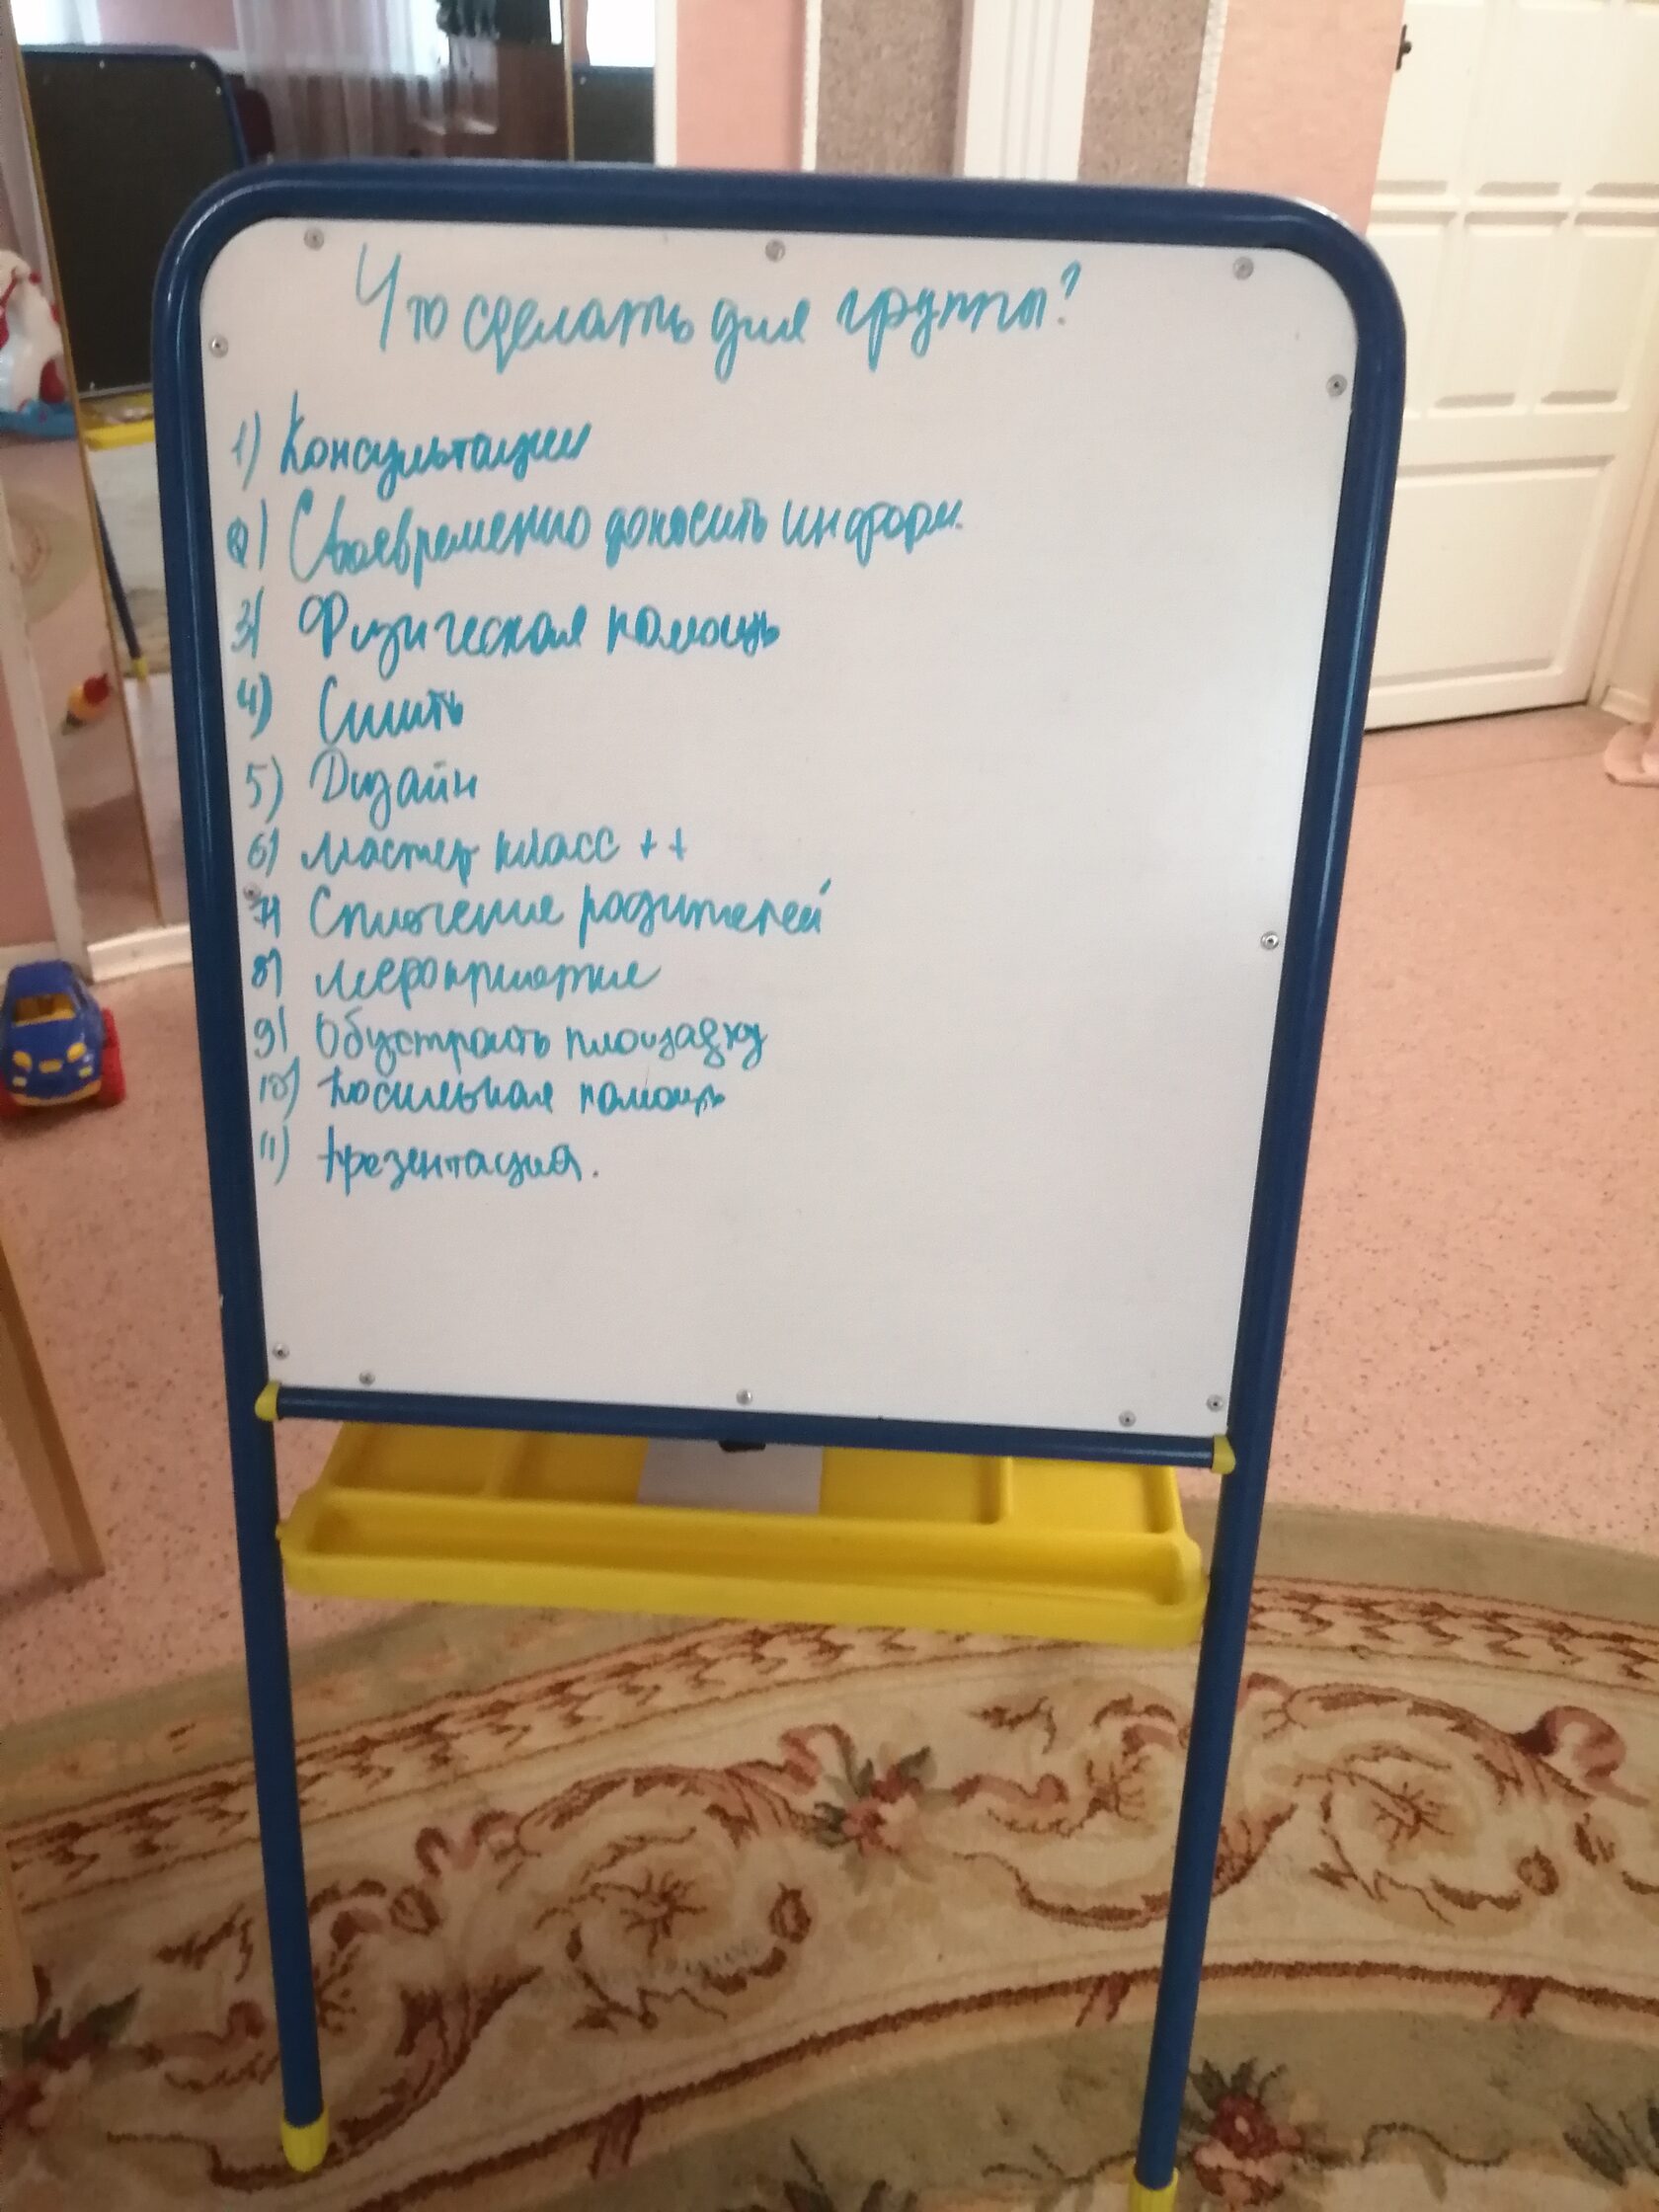 Что сделать для группы?
1) Консультации
2) Своевременно доносить информ.
3) Физическая помощь
4) Сшить
5) Дизайн
6) мастер класс ++
7) Сплочение родителей
8) мероприятие
9) Обустроить площадку
10) посильная помощь
11) презентация.